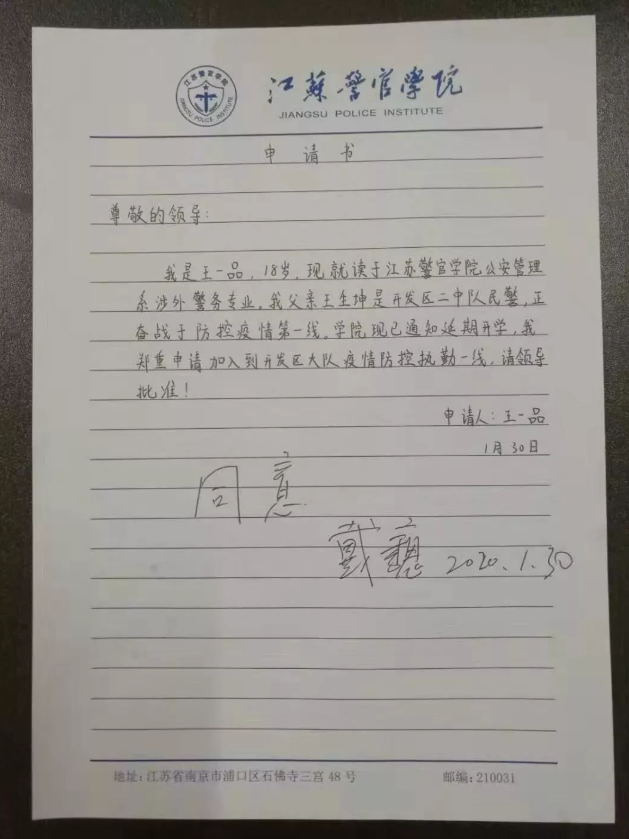 江苏警官学院
JIANGSU POLICE INSTITUTE
江蘇警官學院
JIANGSU POLICE INSTITUTE
申请书
尊敬的领导：
我是王一品，18岁，现就读于江苏警官学院公安管理
系涉外警务专业。我父亲王生坤是开发区二中队民警，正
奋战于防控疫情第一线。学院现已通知延期开学，我
郑重申请加入到开发区大队疫情防控执勤一线，请领导
批准！
申请人：王一品
1月30日
同意
戴 2020.1.30
地址：江苏省南京市浦口区石佛寺三宫48号
邮编：210031